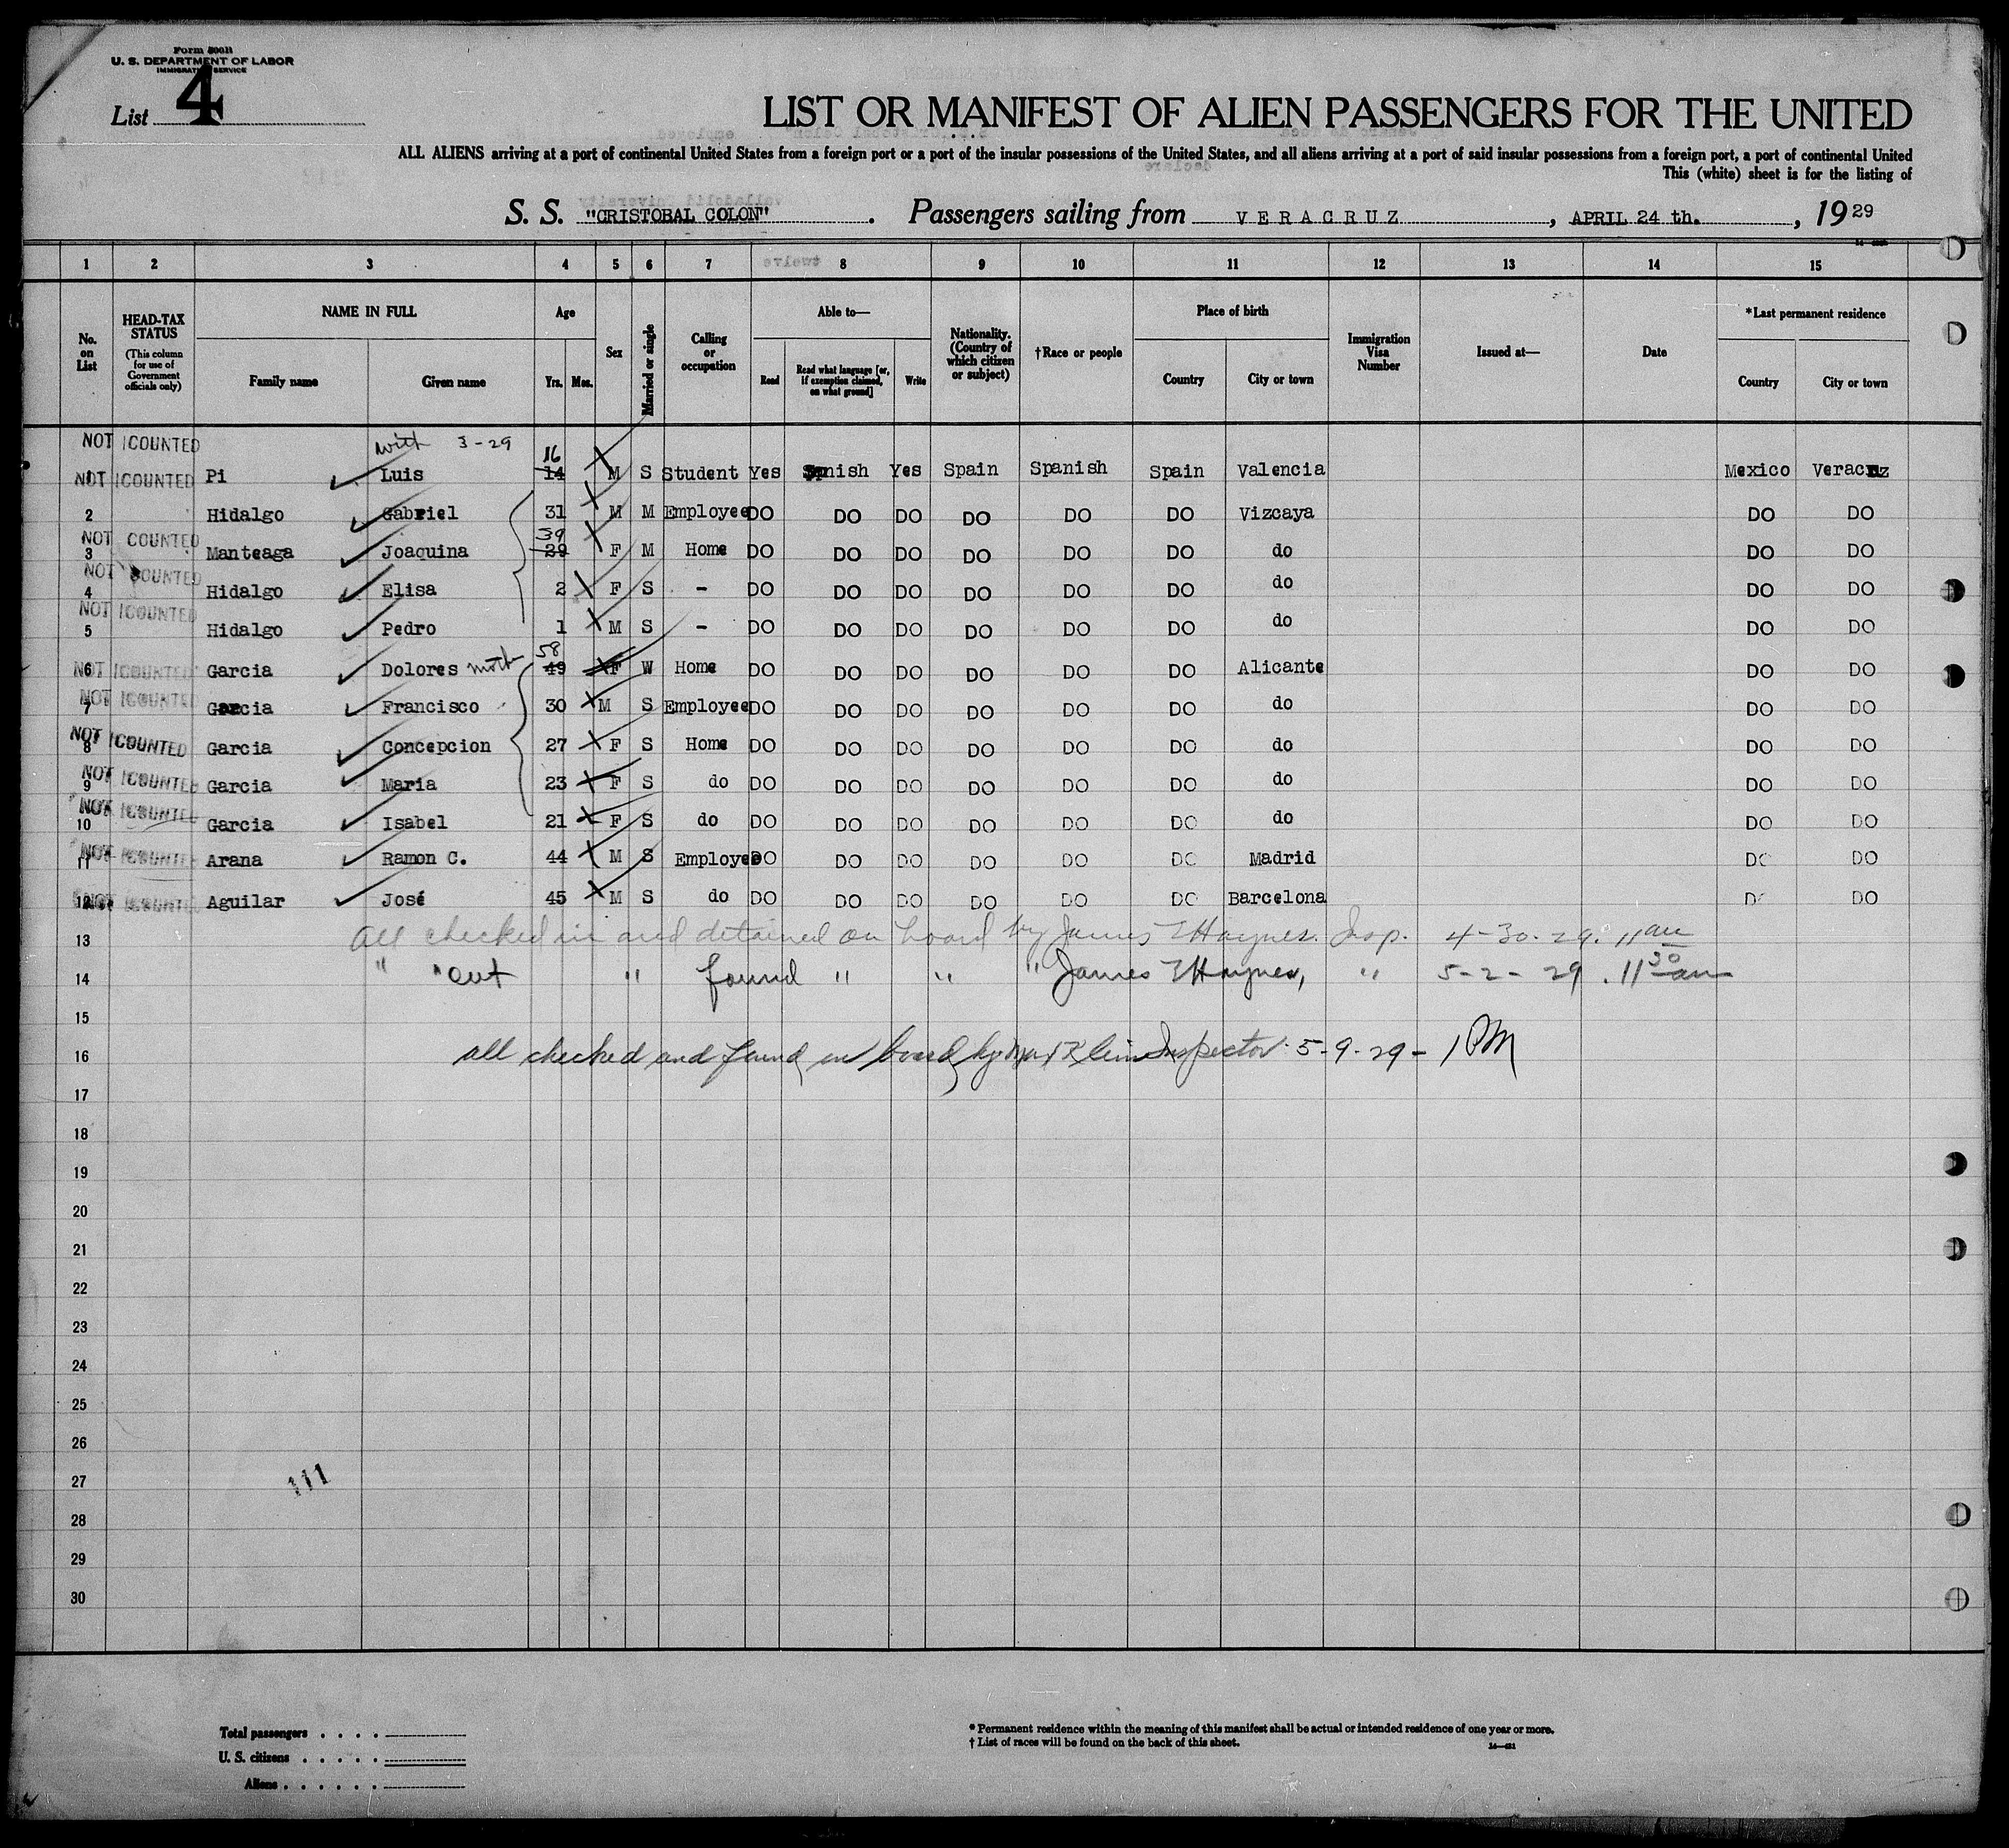 Form 500B
U. S. DEPARTMENT OF LABOR
IMMIGRATION SERVICE
List 4
LIST OR MANIFEST OF ALIEN PASSENGERS FOR THE UNITED
ALL ALIENS arriving at a port of continental United States from a foreign port or a port of the insular possessions of the United States, and all aliens arriving at a port of said insular possessions from a foreign port, a port of continental United
This (white) sheet is for the listing of
S. S. "CRISTOBAL COLON". Passengers sailing from VERACRUZ, APRIL 24 th., 1929
1 2 3 4 5 6 7 8 9 10 11 12 13 14 15
No. on List
HEAD-TAX STATUS
(This column for use of Government officials only)
NAME IN FULL
Family name Given name
Age
Yrs. Mos.
Sex
Married or single
Calling or occupation
Able to—
Read Read what language [or, if exemption claimed, on what ground] Write
Nationality. (Country of which citizen or subject)
†Race or people
Place of birth
Country City or town
Immigration Visa Number
Issued at—
Date
*Last permanent residence
Country City or town
NOT COUNTED with 3-29 16
1 NOT COUNTED Pi Luis 14 M S Student Yes Spnish Yes Spain Spanish Spain Valencia Mexico Veracruz
2 Hidalgo Gabriel 31 M M Employee DO DO DO DO DO DO Vizcaya DO DO
3 NOT COUNTED Manteaga Joaquina 39 29 F M Home DO DO DO DO DO DO do DO DO
4 NOT COUNTED Hidalgo Elisa 2 F S - DO DO DO DO DO DO do DO DO
5 NOT COUNTED Hidalgo Pedro 1 M S - DO DO DO DO DO DO do DO DO
6 NOT COUNTED Garcia Dolores 58 49 F W Home DO DO DO DO DO DO Alicante DO DO
7 NOT COUNTED Garcia Francisco 30 M S Employee DO DO DO DO DO DO do DO DO
8 NOT COUNTED Garcia Concepcion 27 F S Home DO DO DO DO DO DO do DO DO
9 NOT COUNTED Garcia Maria 23 F S do DO DO DO DO DO DO do DO DO
10 NOT COUNTED Garcia Isabel 21 F S do DO DO DO DO DO DO do DO DO
11 NOT COUNTED Arana Ramon C. 44 M S Employee DO DO DO DO DO DO Madrid DO DO
12 NOT COUNTED Aguilar José 45 M S do DO DO DO DO DO DO Barcelona DO DO
13 All checked in and detained on board by James Haynes. Insp. 4-30-29. 11 am
14 " " out " found " " " James Haynes, " 5-2-29. 11 30 am
15
16 all checked and found on board by Inspector 5-9-29 - 1 PM
17
18
19
20
21
22
23
24
25
26
27
111
28
29
30
Total passengers . . . .
U. S. citizens . . . . .
Aliens . . . . . .
* Permanent residence within the meaning of this manifest shall be actual or intended residence of one year or more.
† List of races will be found on the back of this sheet.